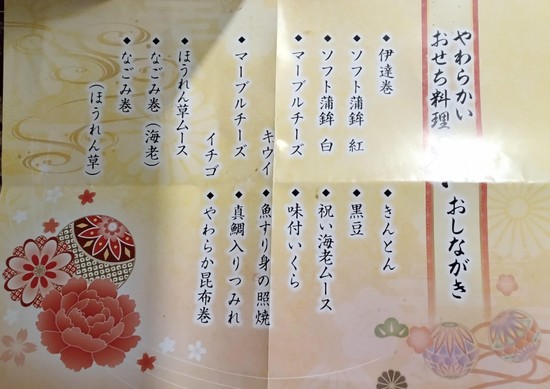 やわらかい
おせち料理
おしながき
◆伊達巻
◆ソフト蒲鉾 紅
◆ソフト蒲鉾 白
◆マーブルチーズ
キウイ
◆マーブルチーズ
イチゴ
◆ほうれん草ムース
◆なごみ巻(海老)
◆なごみ巻
(ほうれん草)
◆きんとん
◆黒豆
◆祝い海老ムース
◆味付いくら
◆魚すり身の照焼
◆真鯛入りつみれ
◆やわらか昆布巻